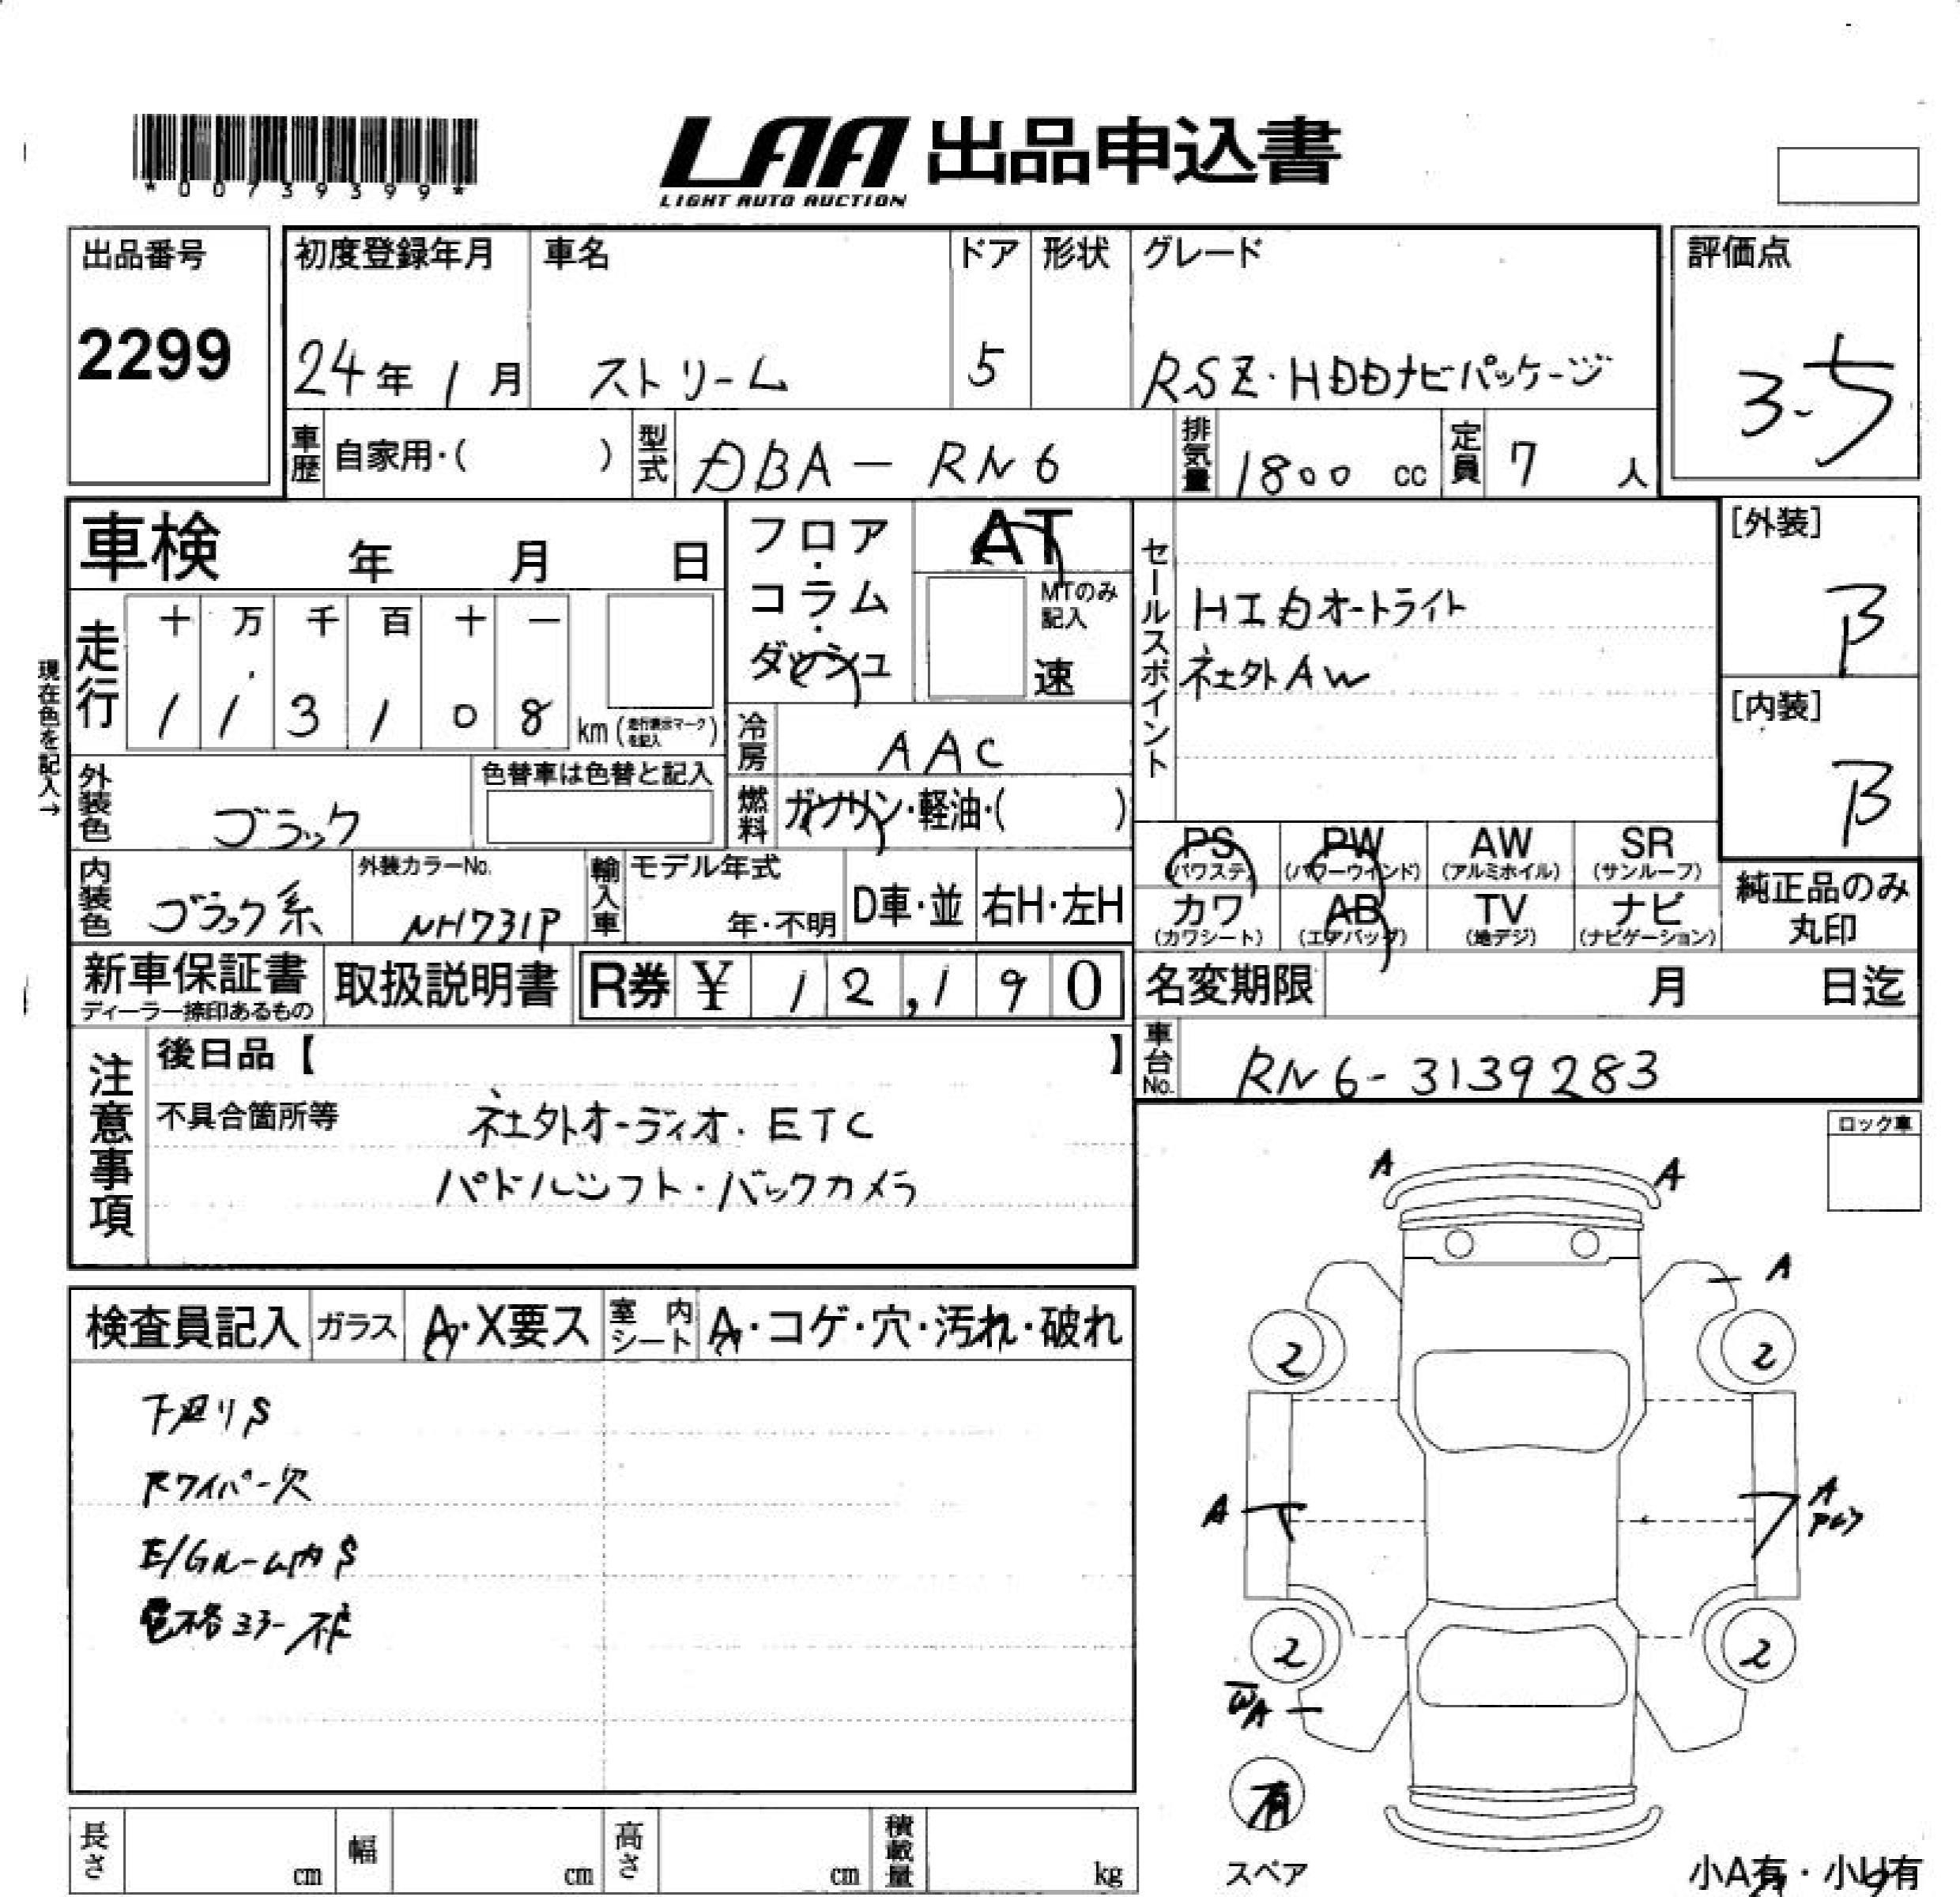 *00739399*
LAA 出品申込書
LIGHT AUTO AUCTION
出品番号
2299
初度登録年月
24年1月
車名
ストリーム
ドア
5
形状
グレード
RSZ・HDDナビパッケージ
評価点
3.5
車歴 自家用・( )
型式 DBA-RN6
排気量 1800 cc
定員 7 人
車検 年 月 日
フロア・コラム・ダッシュ
AT
MTのみ記入
速
セールスポイント
HIDオートライト
社外AW
[外装]
B
[内装]
B
現在色を記入→
走行
十 万 千 百 十 一
1 1 3 1 0 8 km (走行表示マークを記入)
冷房 AAC
燃料 ガソリン・軽油・( )
外装色 ブラック
色替車は色替と記入
内装色 ブラック系
外装カラーNo. NH731P
輸入車 モデル年式 年・不明 D車・並 右H・左H
PS (パワステ) PW (パワーウインド) AW (アルミホイル) SR (サンルーフ)
カワ (カワシート) AB (エアバッグ) TV (地デジ) ナビ (ナビゲーション)
純正品のみ丸印
新車保証書 ディーラー捺印あるもの
取扱説明書
R券 ¥ 12,190
名変期限 月 日迄
車台No. RN6-3139283
注意事項
後日品【 】
不具合箇所等
社外オーディオ・ETC
パドルシフト・バックカメラ
ロック車
検査員記入 ガラス A・X要ス 室内シート A・コゲ・穴・汚れ・破れ
下廻りS
Rワイパー欠
E/Gルーム内S
電格ミラー不良
A A
A
2 2
A A
2 2
WA
有
スペア
小A有・小U有
長さ cm 幅 cm 高さ cm 積載量 kg